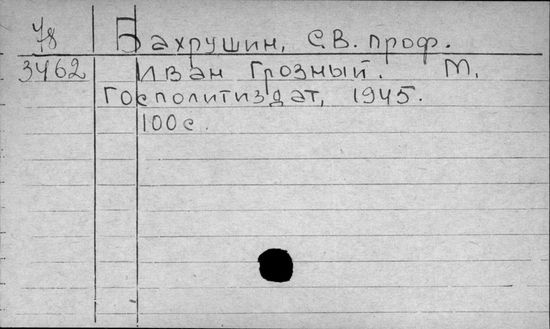 У8 Бахрушин, С.В. проф.
3462 Иван Грозный. М.
Госполитиздат, 1945.
100с.